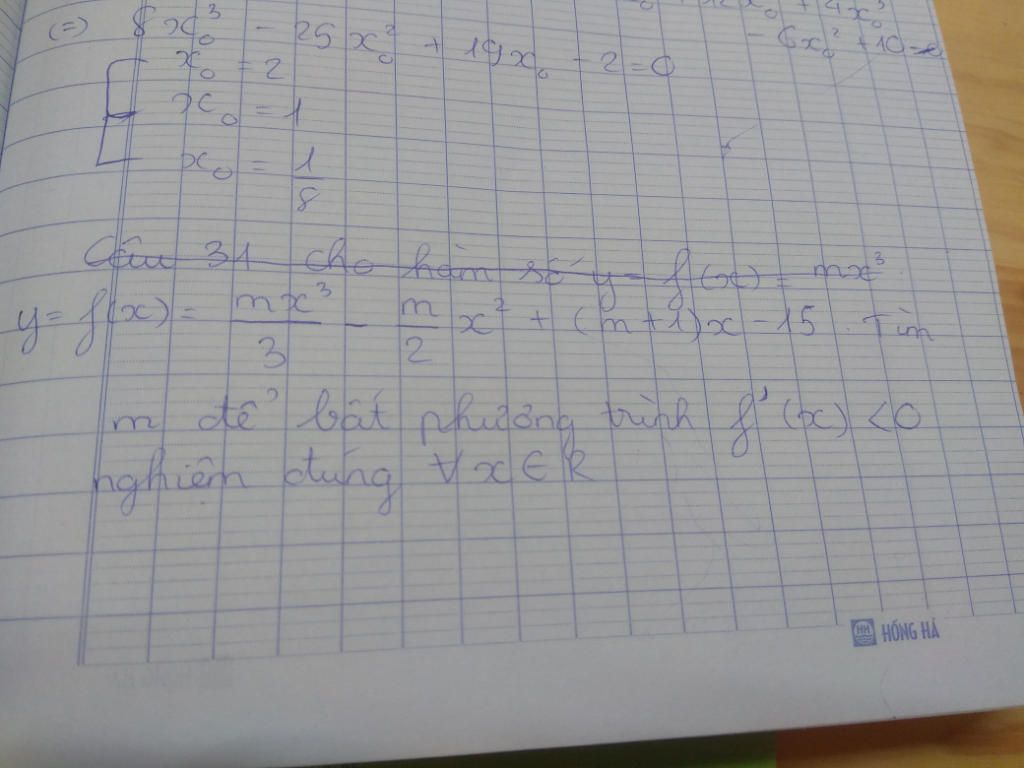 + 4x₀³
(=) 8x₀³ - 25x₀² + 19x₀ - 2 = 0
- 6x₀² + 10
x₀ = 2
x₀ = 1
x₀ = 1/8
Câu 31 cho hàm số y = f(x) = mx³
y = f(x) = mx³/3 - m/2 x² + (m+1)x - 15. Tìm
m để bất phương trình f'(x) < 0
nghiệm đúng ∀x∈R
HH HỒNG HÀ